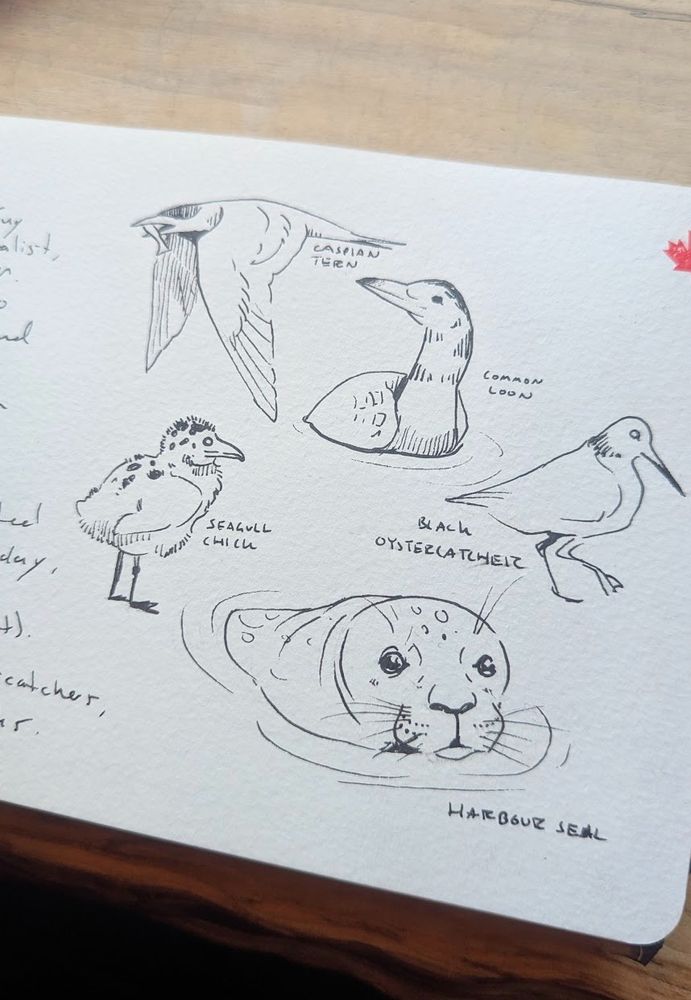 day,
catchers,
CASPIAN
TERN
COMMON
LOON
SEAGULL
CHICK
BLACK
OYSTERCATCHER
HARBOUR SEAL